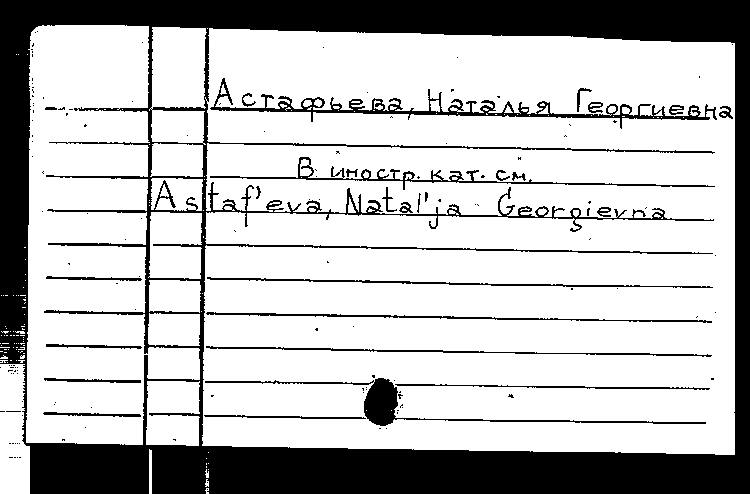 Астафьева, Наталья Георгиевна
В иностр. кат. см.
Astaf'eva, Natal'ja Georgievna